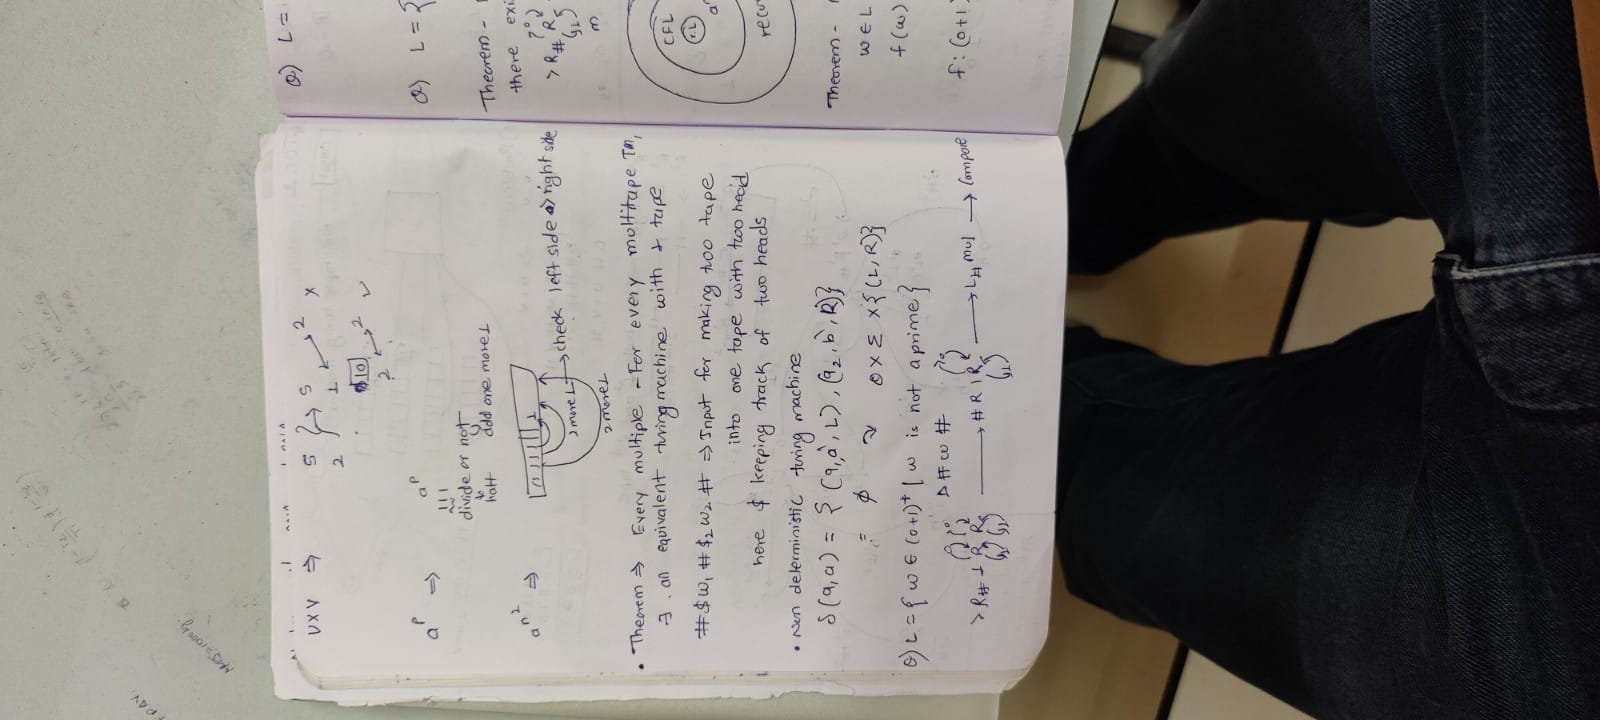 UXV ⇒
5 } → 5
2
1 2 X
10
2 2 ✓
?
a^p ⇒ a^p
divide or not
to
halt add one more 1
a^{n^2} ⇒
2 more 1 → check left side → right side
2 more 1
• Theorem ⇒ Every multiple - For every multitape TM,
∃ an equivalent turing machine with 1 tape
# $ w₁ # $₂ w₂ # ⇒ Input for making two tape
into one tape with two head
here $ keeping track of two heads
• Non deterministic turing machine
δ(q,a) = { (q₁,a',L), (q₂,b',R)}
= φ Q X Σ X {(L,R)}
Q) L = { w ∈ (0+1)⁺ | w is not a prime }
Δ # w #
> R# 1 R R → # R 1 R → L# mul → Compare
Q) L =
Q) L = {
Theorem -
there exi
> R # R
m
CFL
r.L
recu
Theorem -
w ∈ L
f(w)
f: (0+1)